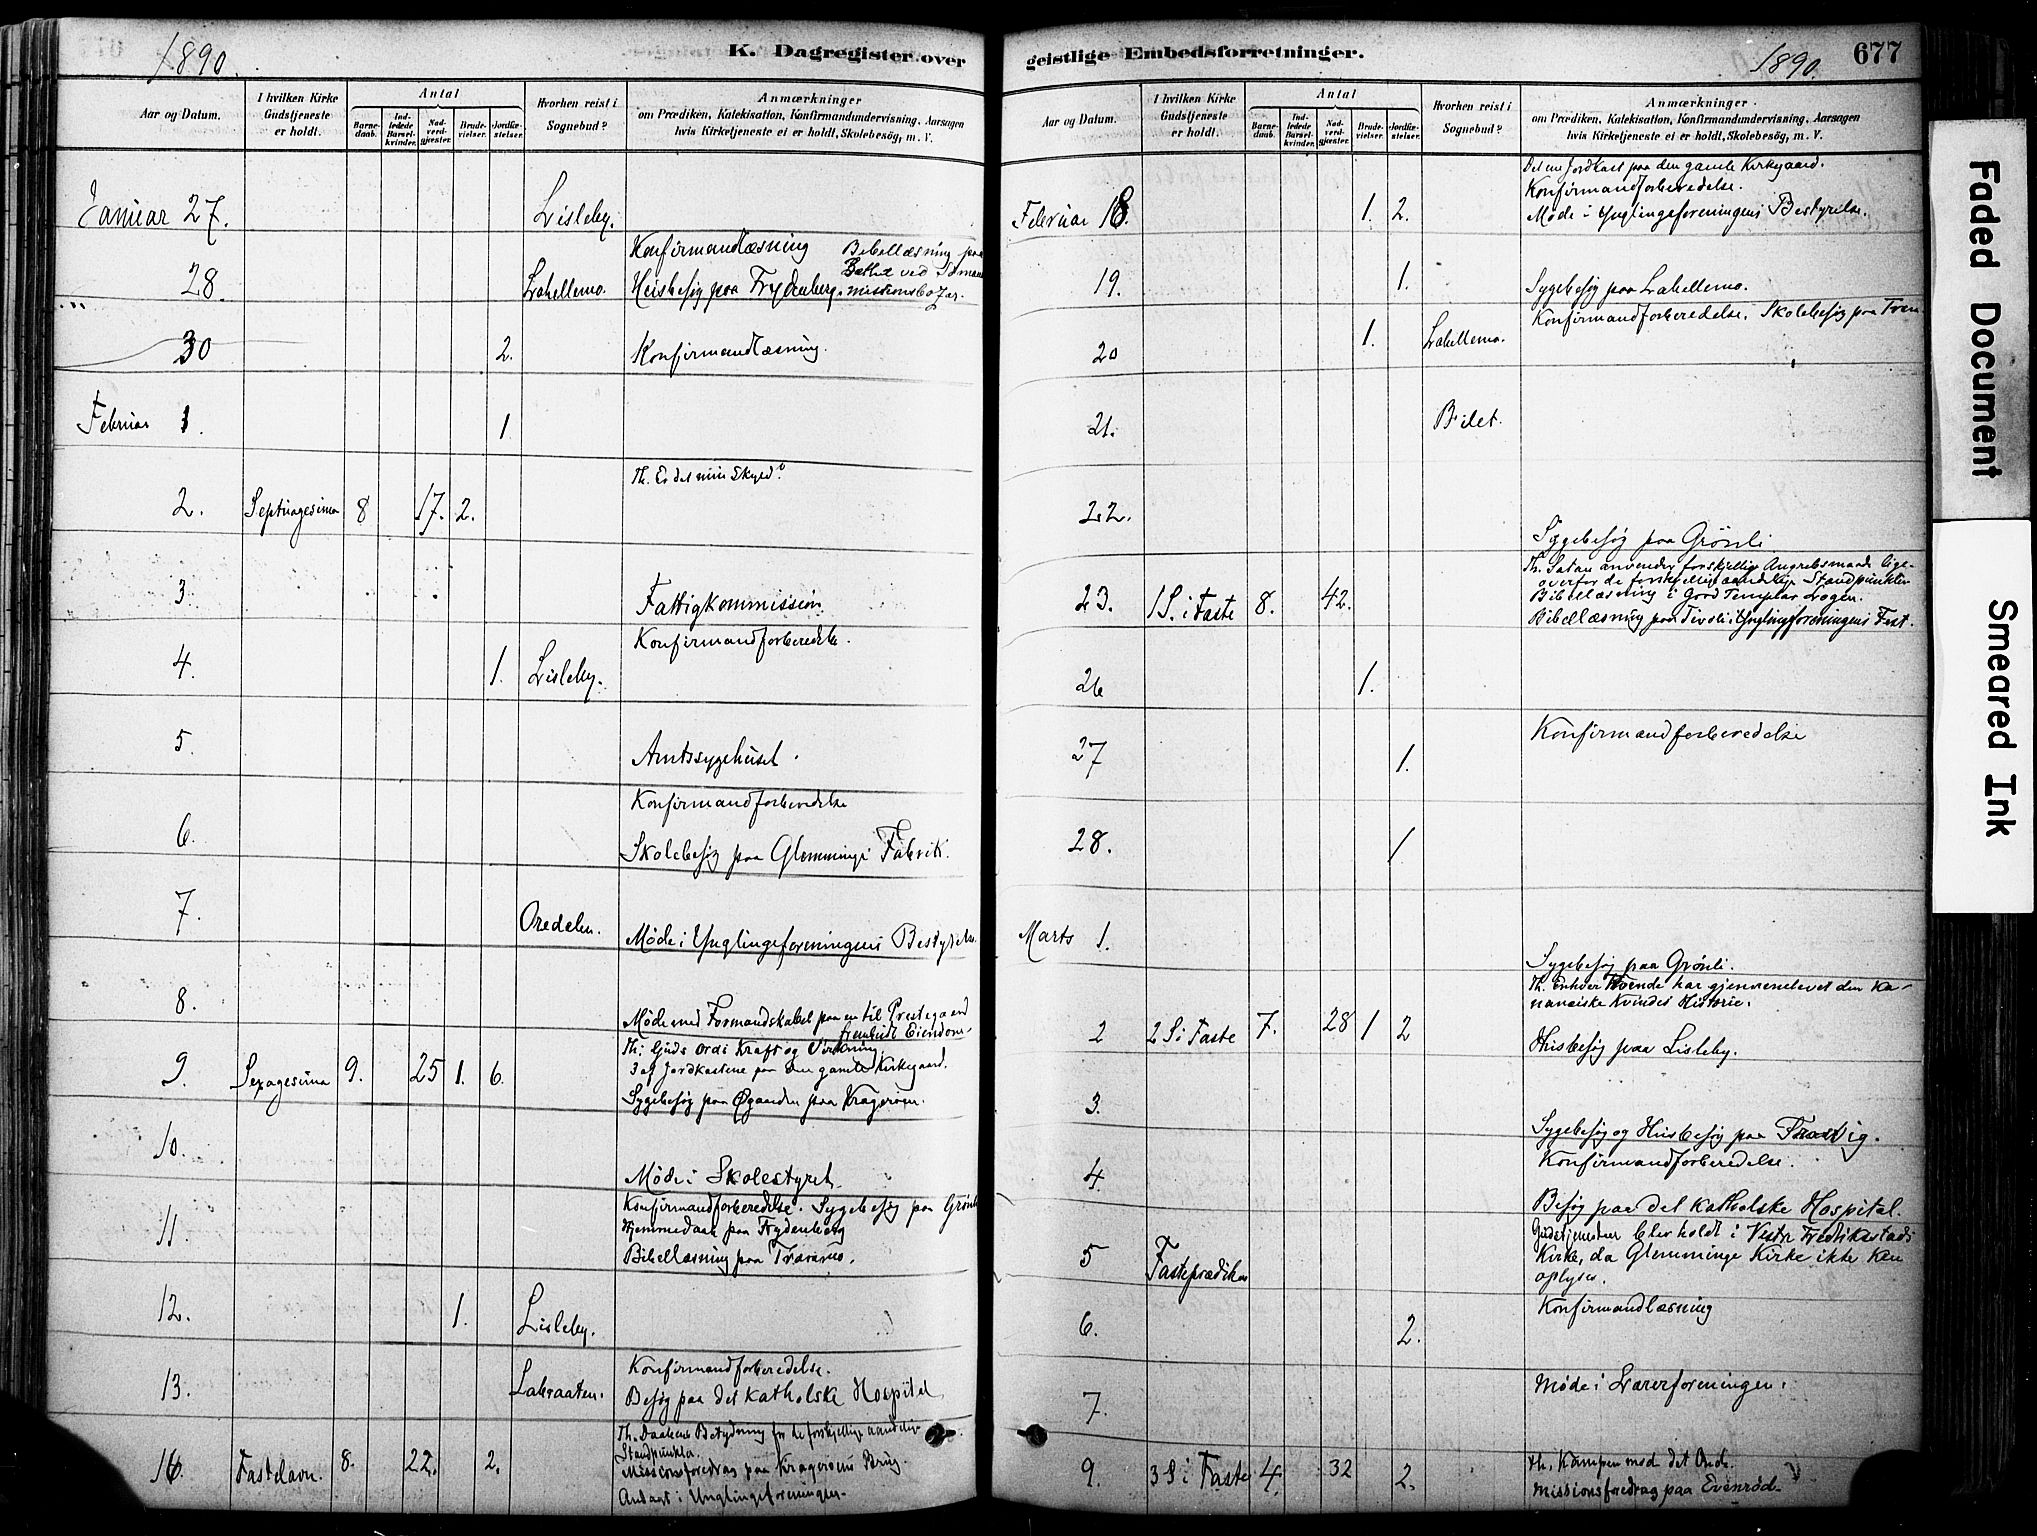 1890.
K. Dagregister over
Aar og Datum.
I hvilken Kirke Gudstjeneste er holdt.
Antal
Barnedaab.
Indledede Barselkvinder.
Nadverdgjester.
Brudevielser.
Jordfæstelser.
Hvorhen reist i Sognebud?
Anmærkninger
om Prædiken, Katekisation, Konfirmandundervisning, Aarsagen
hvis Kirketjeneste ei er holdt, Skolebesög, m. V.
Januar 27. Lisleby.
Konfirmandlæsning Bibellæsning paa
28. Labellemo. Husbesøg paa Frydenberg. missionsbazar.
30 2. Konfirmandlæsning.
Februar 1. 1
Th. Er det min Skyld?
2. Septuagesima 8 17. 2.
3. Fattigkommission
Konfirmandforberedelse.
4. 1. Lisleby.
5. Amtssygehuset.
Konfirmandforberedelse
6. Skolebesøg paa Glemminge Fabrik.
7. Oredalen. Møde i Ynglingeforeningens Bestyrelse
8. Møde med Formandskabet paa en til Prestegaard
frembudt Eiendom.
Th: Guds Ords Kraft og Virkning
9. Sexagesima 9. 25 1. 6. 3 af Jordkastene paa den gamle Kirkegaard.
Sygebesøg paa Øgaarden paa Kragerøen.
10. Møde i Skolestyret.
Konfirmandforberedelse. Sygebesøg paa Grønli
11. Hjemmedaab paa Frydenberg
Bibellæsning paa Traramo.
12. 1. Lisleby.
Konfirmandforberedelse.
13. Labraaten. Besøg paa det katholske Hospital
Th. Daabens Betydning for de forskjellige aandelige
Standpunkter.
16 Fastelavn. 8. 22. 2. Missionsforedrag paa Kragerøens Brug.
Andagt i Ynglingeforeningen.
geistlige Embedsforretninger.
1890.
677
Aar og Datum.
I hvilken Kirke Gudstjeneste er holdt.
Antal
Barnedaab.
Indledede Barselkvinder.
Nadverdgjester.
Brudevielser.
Jordfæstelser.
Hvorhen reist i Sognebud?
Anmærkninger.
om Prædiken, Katekisation, Konfirmandundervisning, Aarsagen
hvis Kirketjeneste ei er holdt, Skolebesög, m. V.
Det ene Jordkast paa den gamle Kirkegaard.
Konfirmandforberedelse.
Februar 18. 1. 2. Møde i Ynglingeforeningens Bestyrelse.
19. 1. Sygebesøg paa Labellemo.
Konfirmandforberedelse. Skolebesøg paa
20 1. Labellemo.
21. Bilet.
22. Sygebesøg paa Grønli
Th. Satan anvender forskjellig Angrebsmaade lige-
overfor de forskjellige aandelige Standpunkter
23. 1 S. i Faste 8. 42. Bibellæsning i Good Templar Logen.
Bibellæsning paa Tivoli i Ynglingeforeningens Fest.
26 1.
Konfirmandforberedelse
27 1.
28. 1
Marts 1. Sygebesøg paa Grønli.
Th. Enhver Troende har gjennemlevet den Ka-
nanæiske Kvindes Historie.
2 2 S i Faste 7. 28 1 2 Husbesøg paa Lisleby.
3. Sygebesøg og Husbesøg paa Trosvig.
Konfirmandforberedelse.
4. Besøg paa det katholske Hospital.
Gudstjenesten blev holdt i Vestre Fredrikstads
5 Fasteprædiken Kirke, da Glemminge Kirke ikke kan
oplyses.
Konfirmandlæsning
6. 2.
7. Møde i Lærerforeningen.
Th. Kampen mod det Onde.
9. 3 S i Faste 4. 32 2. Missionsforedrag paa Evenrød.
Faded Document
Smeared Ink